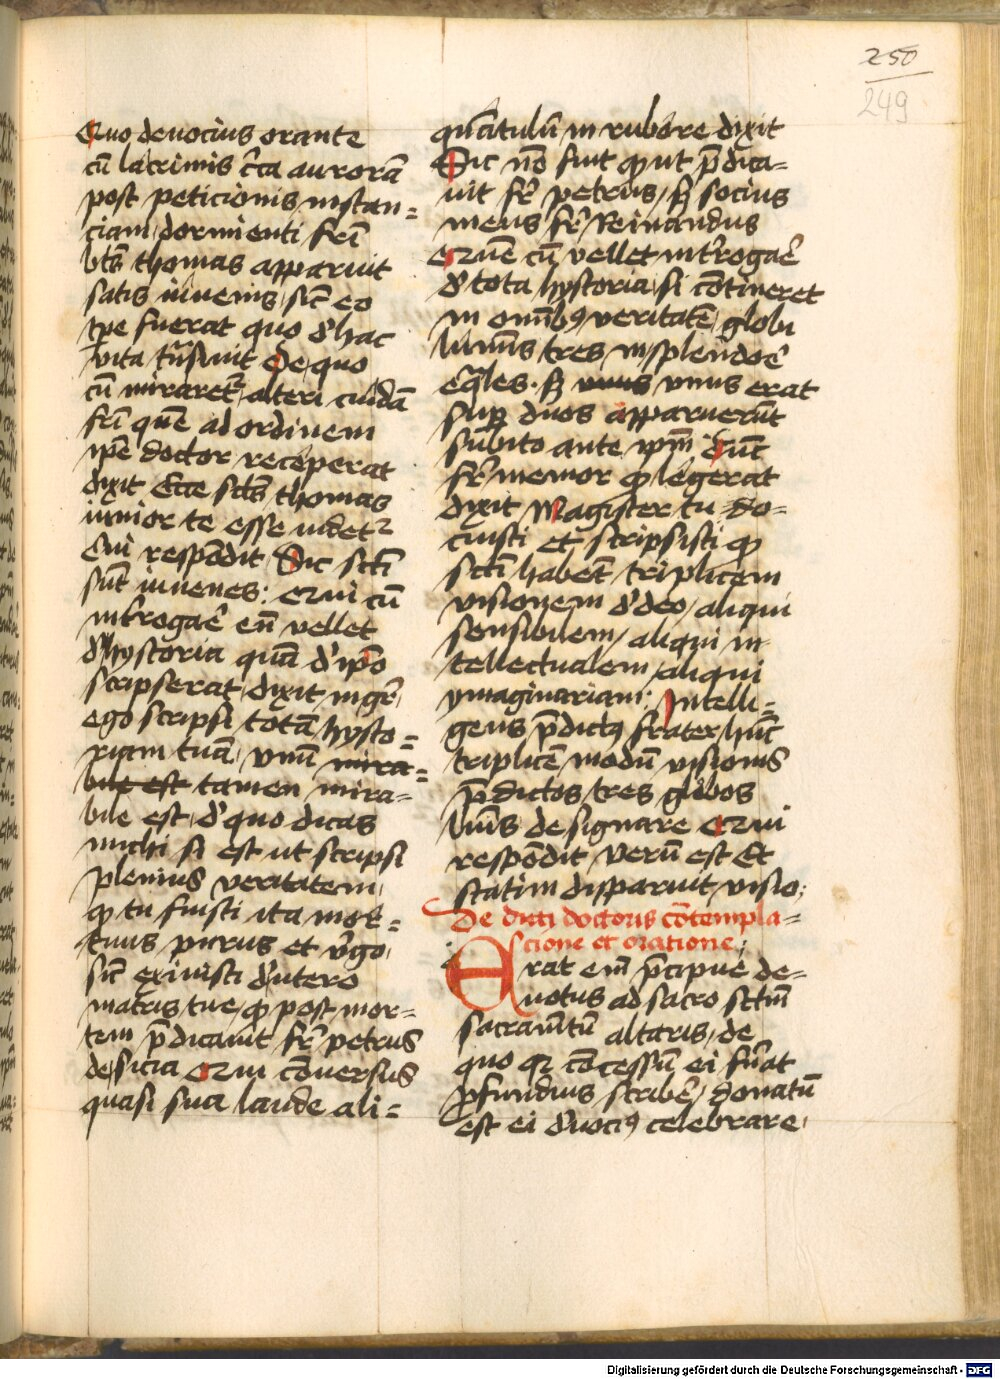 250
249
Quo deuocius orante
cū lacrimis c̄ca aurorā
post peticionis instan=
ciam dormienti fr̄i
bt̄s thomas apparuit
satis iuuenis sic̄ eo
tp̄e fuerat quo d' hac
vita tn̄siuit De quo
cū miraret~ alteri cuidā
fr̄i quē ad ordinem
ip̄e doctor receperat
dixit Ecce sct̄s thomas
iunior te esse videt~
Cui respōdit Sic sct̄i
sūt iuuenes: Cui cū
int'rogar̄ eū vellet
d' hystoria quā d' ip̄o
scripserat dixit mgr̄
ego scripsi totā hysto=
riam tuā vnū mira=
bile est tamen mira=
bile est d' quo dicas
michi si est ut scripsi
plenius veritatem
q̄ tu fuisti ita mor=
tuus purus et v'go
sic̄ exiuisti d' utero
matris tue q̄ post mor=
tem p̄dicauit fr̄ petrus
de sicia Cui cōuersus
quasi sua laude ali=
quātulū in rubore dixit
Sic nō fuit q̄ ut p̄dica=
uit fr̄ petrus s; socius
meus fr̄ Reinandus
Quē cū vellet int'rogar̄
d' tota hystoria si cōtineret
in omīb9 veritatē globi
lumīs tres in splendor̄
eq̄les. s; vnus vnus erat
sup̄ duos apparuerūt
subito ante ip̄m Tūc
fr̄ memor q̄ legerat
dixit Magister tu do=
cuisti et scripsisti q̄
sct̄i habēt triplicem
visionem d' deo aliqui
sensibilem aliqui in
tellectualem aliqui
ymaginariam: Intelli=
gens p̄dict9 frater hūc
triplicē modū visionis
p̄dictos tres globos
lumīs designare Cui
respōdit Verū est Et
statim disparuit visio:
De dicti doctoris cōtempla=
cione et oratione:
Erat em̄ p̄cipue de=
uotus ad sacro sct̄m
sacramētū altaris de
quo q; cōcessū ei fu'at
p̄fundius scriber̄ donatū
est ei d'uoci9 celebrare
Digitalisierung gefördert durch die Deutsche Forschungsgemeinschaft - DFG